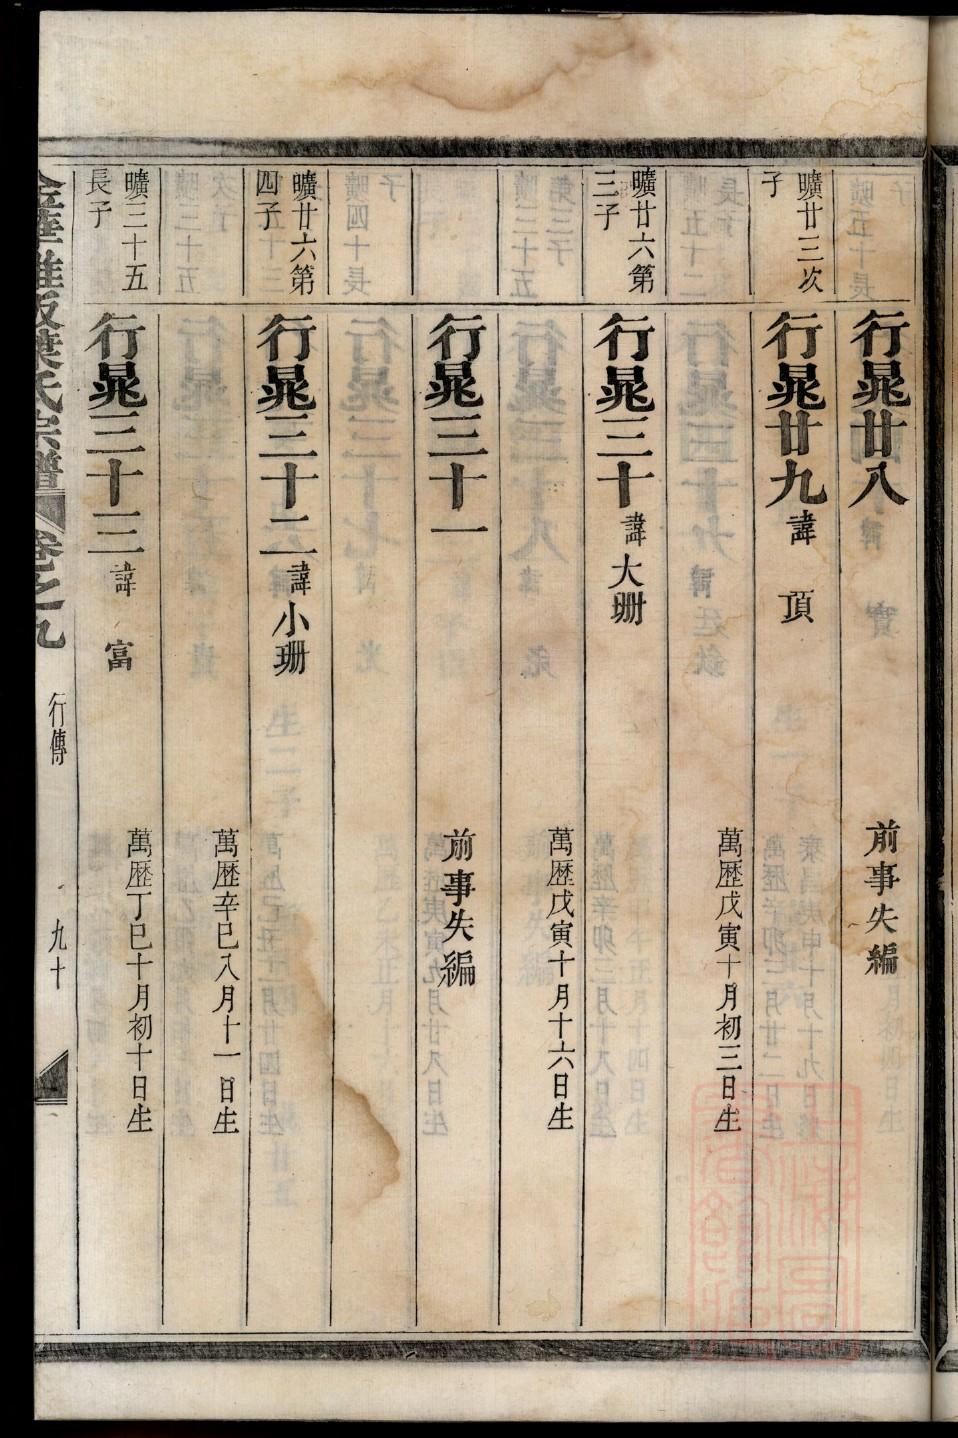 行晁廿八
前事失編
曠廿三次
子
行晁廿九諱 頂
萬歷戊寅十月初三日生
曠廿六第
三子
行晁三十諱大珊
萬歷戊寅十月十六日生
行晁三十一
前事失編
曠廿六第
四子
行晁三十二諱小珊
萬歷辛巳八月十一日生
曠三十五
長子
行晁三十三諱 富
萬歷丁巳十月初十日生
葉氏宗譜 卷之九 行傳 九十